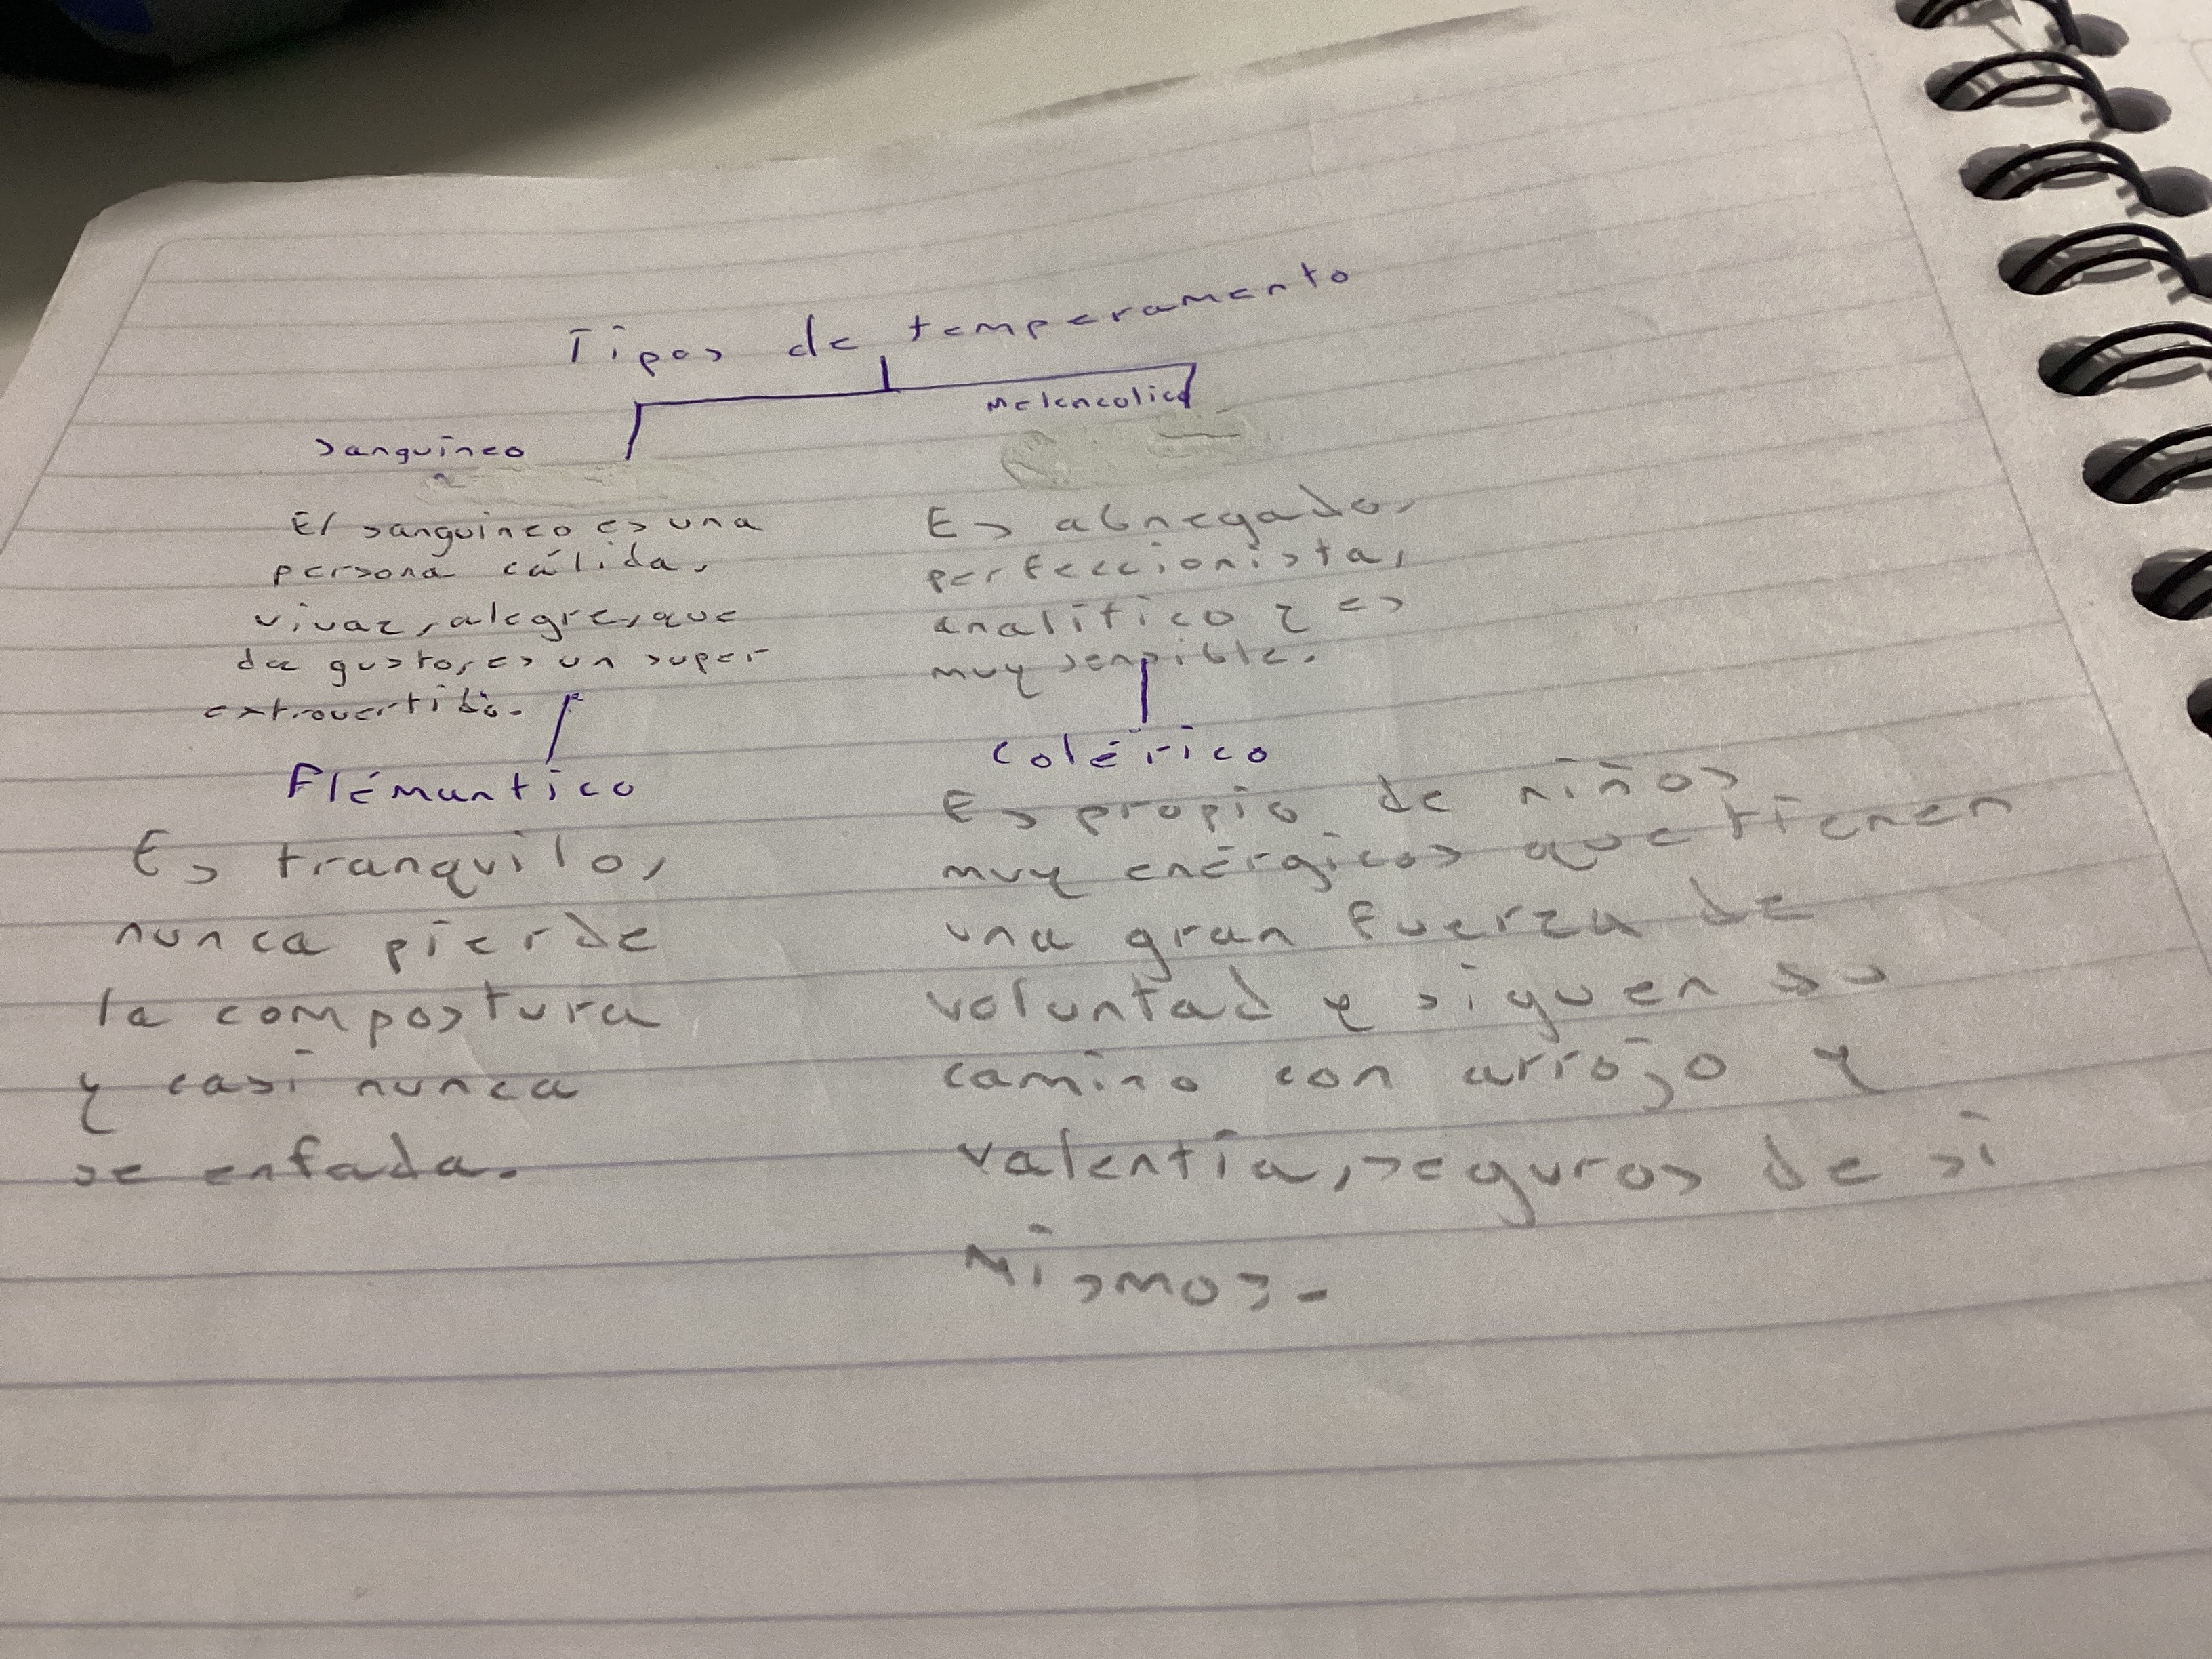 Tipos de temperamento
Sanguíneo
El sanguíneo es una
persona cálida,
vivaz, alegre, que
da gusto, es un super
extrovertido.
Melancolico
Es abnegado,
perfeccionista,
analítico y es
muy sensible.
Flémantico
Es tranquilo,
nunca pierde
la compostura
y casi nunca
se enfada.
Colérico
Es propio de niños
muy enérgicos que tienen
una gran fuerza de
voluntad y siguen su
camino con arrojo y
valentía, seguros de si
Mismos.